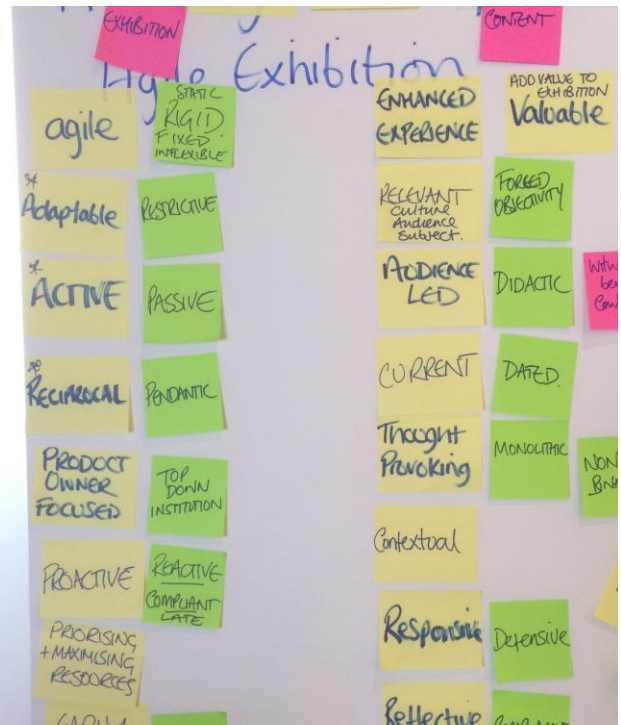 EXHIBITION
CONTENT
Agile Exhibition
agile
STATIC
RIGID
FIXED
INFLEXIBLE
*
Adaptable
RESTRICTIVE
*
ACTIVE
PASSIVE
*
RECIPROCAL
PENDANTIC
PRODUCT
OWNER
FOCUSED
TOP
DOWN
INSTITUTION
PROACTIVE
REACTIVE
COMPLIANT
LATE
PRIORISING
+ MAXIMISING
RESOURCES
ENHANCED
EXPERIENCE
ADD VALUE TO
EXHIBITION
Valuable
RELEVANT
Culture
Audience
Subject.
FORCED
OBJECTIVITY
AUDIENCE
LED
DIDACTIC
CURRENT
DATED.
Thought
Provoking
MONOLITHIC
NON
Contextual
Responsive
Defensive
Reflective